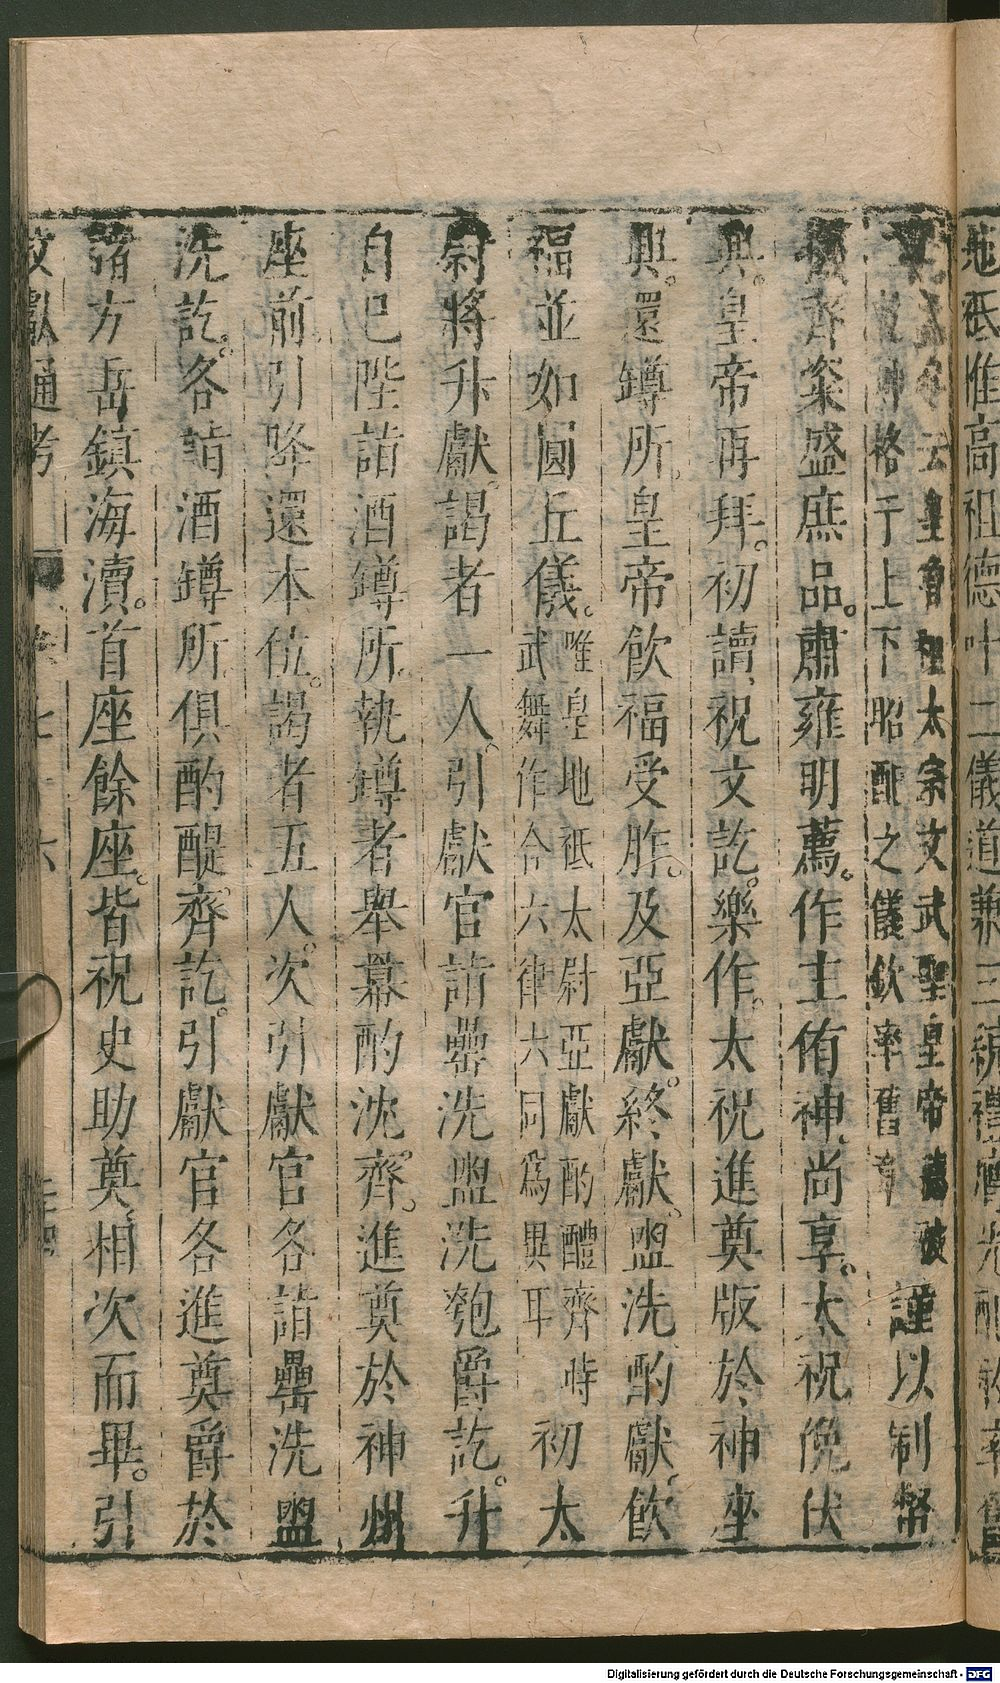 地祇惟高祖德叶二儀道兼三統禮
云皇曾祖太宗文武聖皇帝
格于上下昭配之儀欽率舊章
謹以制幣
齊粢盛庶品。肅雍明薦。作主侑神。尚享。太祝俛伏
興。皇帝再拜。初讀祝文訖。樂作。太祝進奠版於神座
興。還罇所。皇帝飲福受胙。及亞獻。終獻。盥洗酌獻。飲
福並如圓丘儀。
唯皇地祇太尉亞獻酌醴齊時
武舞作合六律六同為異耳
初太
尉將升獻。謁者一人。引獻官詣罍洗盥洗匏爵訖。升
自巳陛詣酒罇所。執罇者舉冪酌沈齊。進奠於神州
座前。引降還本位。謁者五人。次引獻官各詣罍洗盥
洗訖。各詣酒罇所。俱酌醍齊訖。引獻官各進奠爵於
諸方岳鎮海瀆。首座餘座。皆祝史助奠。相次而畢。引
文獻通考
卷七十六